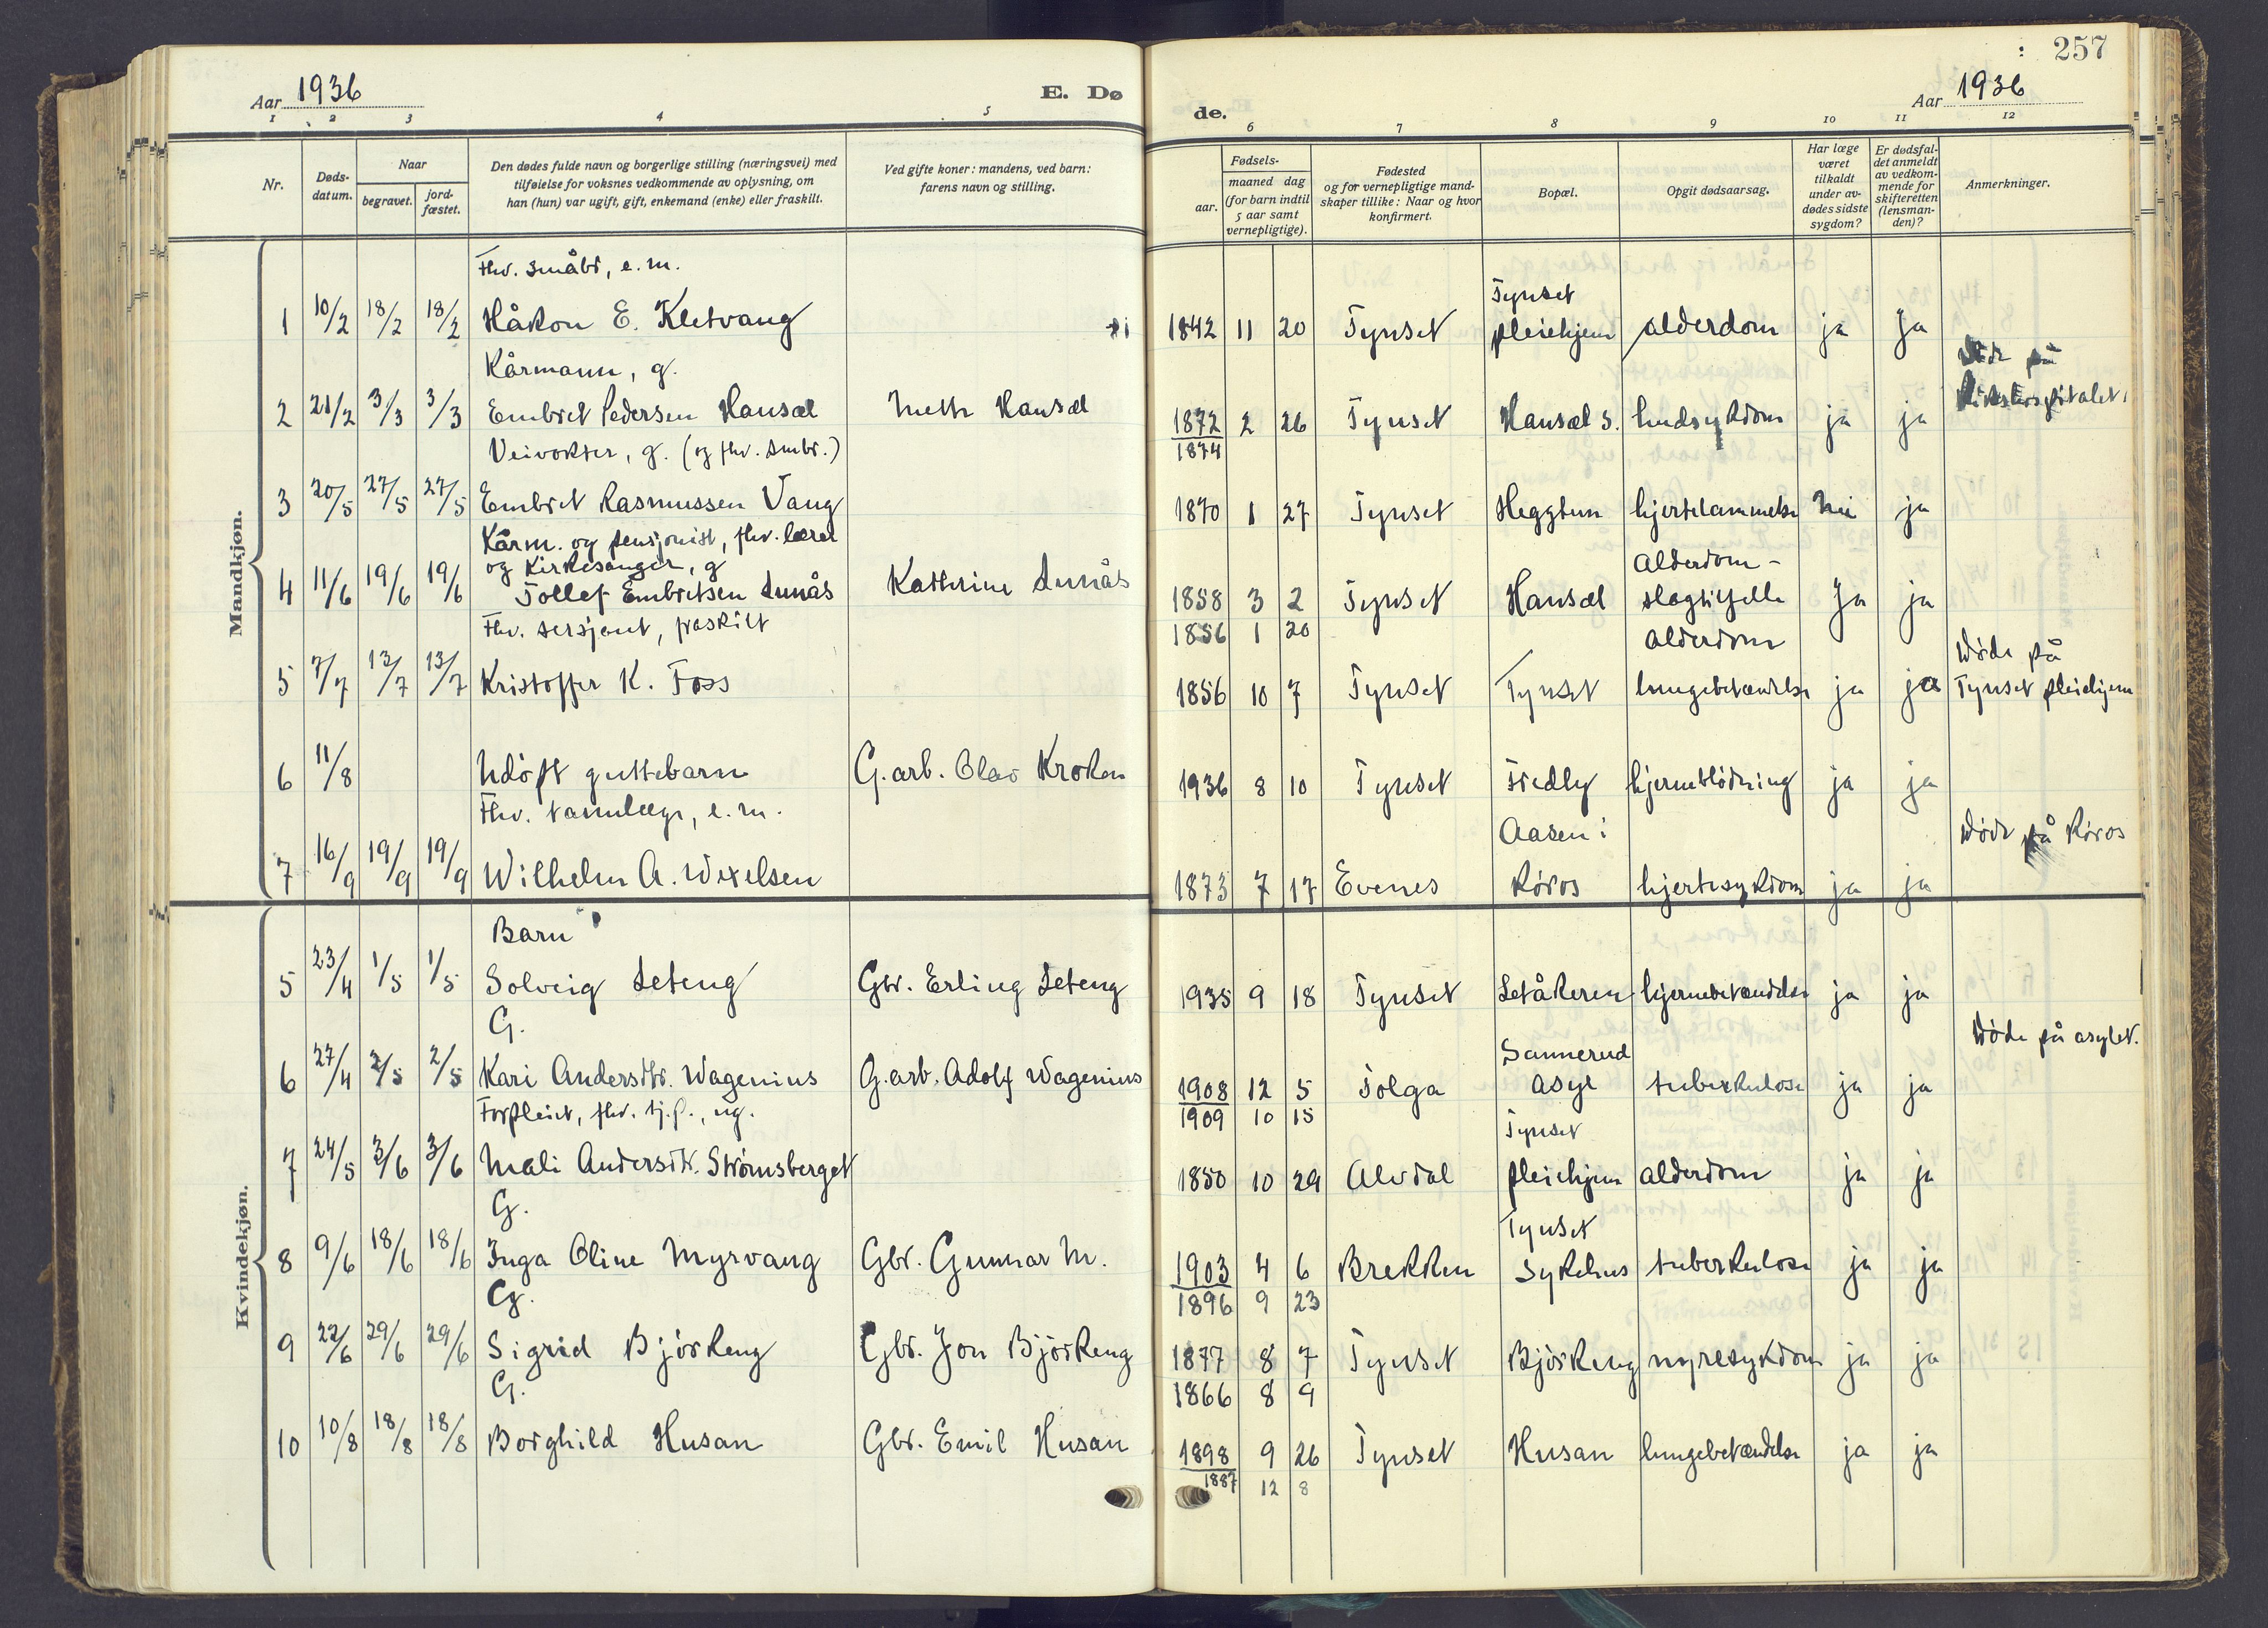 257
Aar 1936
E. Dø
de.
Aar 1936
1 2 3 4 5 6 7 8 9 10 11 12
Nr.
Døds-
datum.
Naar
begravet.
jord-
fæstet.
Den dødes fulde navn og borgerlige stilling (næringsvei) med
tilføielse for voksnes vedkommende av oplysning, om
han (hun) var ugift, gift, enkemand (enke) eller fraskilt.
Ved gifte koner: mandens, ved barn:
farens navn og stilling.
Fødsels-
aar.
maaned dag
(for barn indtil
5 aar samt
vernepligtige).
Fødested
og for vernepligtige mand-
skaper tillike: Naar og hvor
konfirmert.
Bopæl.
Opgit dødsaarsag.
Har læge
været
tilkaldt
under av-
dødes sidste
sygdom?
Er dødsfal-
det anmeldt
av vedkom-
mende for
skifteretten
(lensman-
den)?
Anmerkninger.
Mandkjøn.
Fhv. småbr, e.m.
Tynset
1 10/2 18/2 18/2 Håkon E. Kletvang 1842 11 20 Tynset pleiehjem alderdom ja Ja
Kårmann, g. Døde på
Rikshospitalet.
2 21/2 3/3 3/3 Embret Pedersen Hansæl Meth Hansæl 1872 2 26 Tynset Hansæl s. hudsykdom ja ja
1874
Veivokter, g. (og fhv. småbr.)
3 20/5 27/5 27/5 Embret Rasmussen Vang 1870 1 27 Tynset Heggtun hjertelammelse Nei ja
Kårm. og pensjonist, fhv. lærer
og Kirkesanger, g Alderdom -
4 11/6 19/6 19/6 Tollef Embretsen Lunås Kathrine Lunås 1858 3 2 Tynset Hansæl slagtilfelle Ja ja
1856 1 20
Fhv. sersjant, fraskilt alderdom Døde på
5 7/7 13/7 13/7 Kristoffer K. Foss 1856 10 7 Tynset Tynset lungebetændelse ja ja Tynset pleiehjem
6 11/8 Udøpt guttebarn G.arb. Olav Kroken 1936 8 10 Tynset Fredly hjerneblödning ja ja
Fhv. tannlæge, e.m. Aasen i Døde på Røros
7 16/9 19/9 19/9 Wilhelm A. Wexelsen 1873 7 17 Evenes Røros hjertesykdom ja ja
Kvindekjøn.
Barn
5 23/4 1/5 1/5 Solveig Leteng Gbr. Erling Leteng 1935 9 18 Tynset Letåkeren hjernebetændelse ja ja
G. Sannerud Døde på asylet.
6 27/4 2/5 2/5 Kari Andersdtr. Wagenius G.arb. Adolf Wagenius 1908 12 5 Tolga asyl tuberkulose ja ja
1909 10 15
Forpleiet, fhv. tj.p., ug. Tynset
7 24/5 3/6 3/6 Mali Andersdtr. Strømsberget 1850 10 29 Alvdal pleiehjem alderdom ja ja
G. Tynset
8 9/6 18/6 18/6 Inga Oline Myrvang Gbr. Gunnar M. 1903 4 6 Brekken Sykehus tuberkulose ja ja
1896 9 23
G.
9 22/6 29/6 29/6 Sigrid Bjørkeng Gbr. Jon Bjørkeng 1877 8 7 Tynset Bjørkeng nyresykdom ja ja
1866 8 9
G.
10 10/8 18/8 18/8 Borghild Husan Gbr. Emil Husan 1898 9 26 Tynset Husan lungebetændelse ja ja
1887 12 8